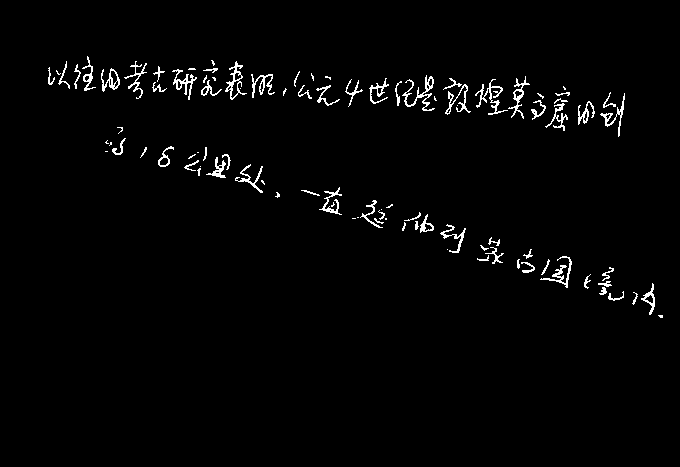 以往的考古研究表明,公元4世纪是敦煌莫高窟的创
18公里处,一直延伸到蒙古国境内.